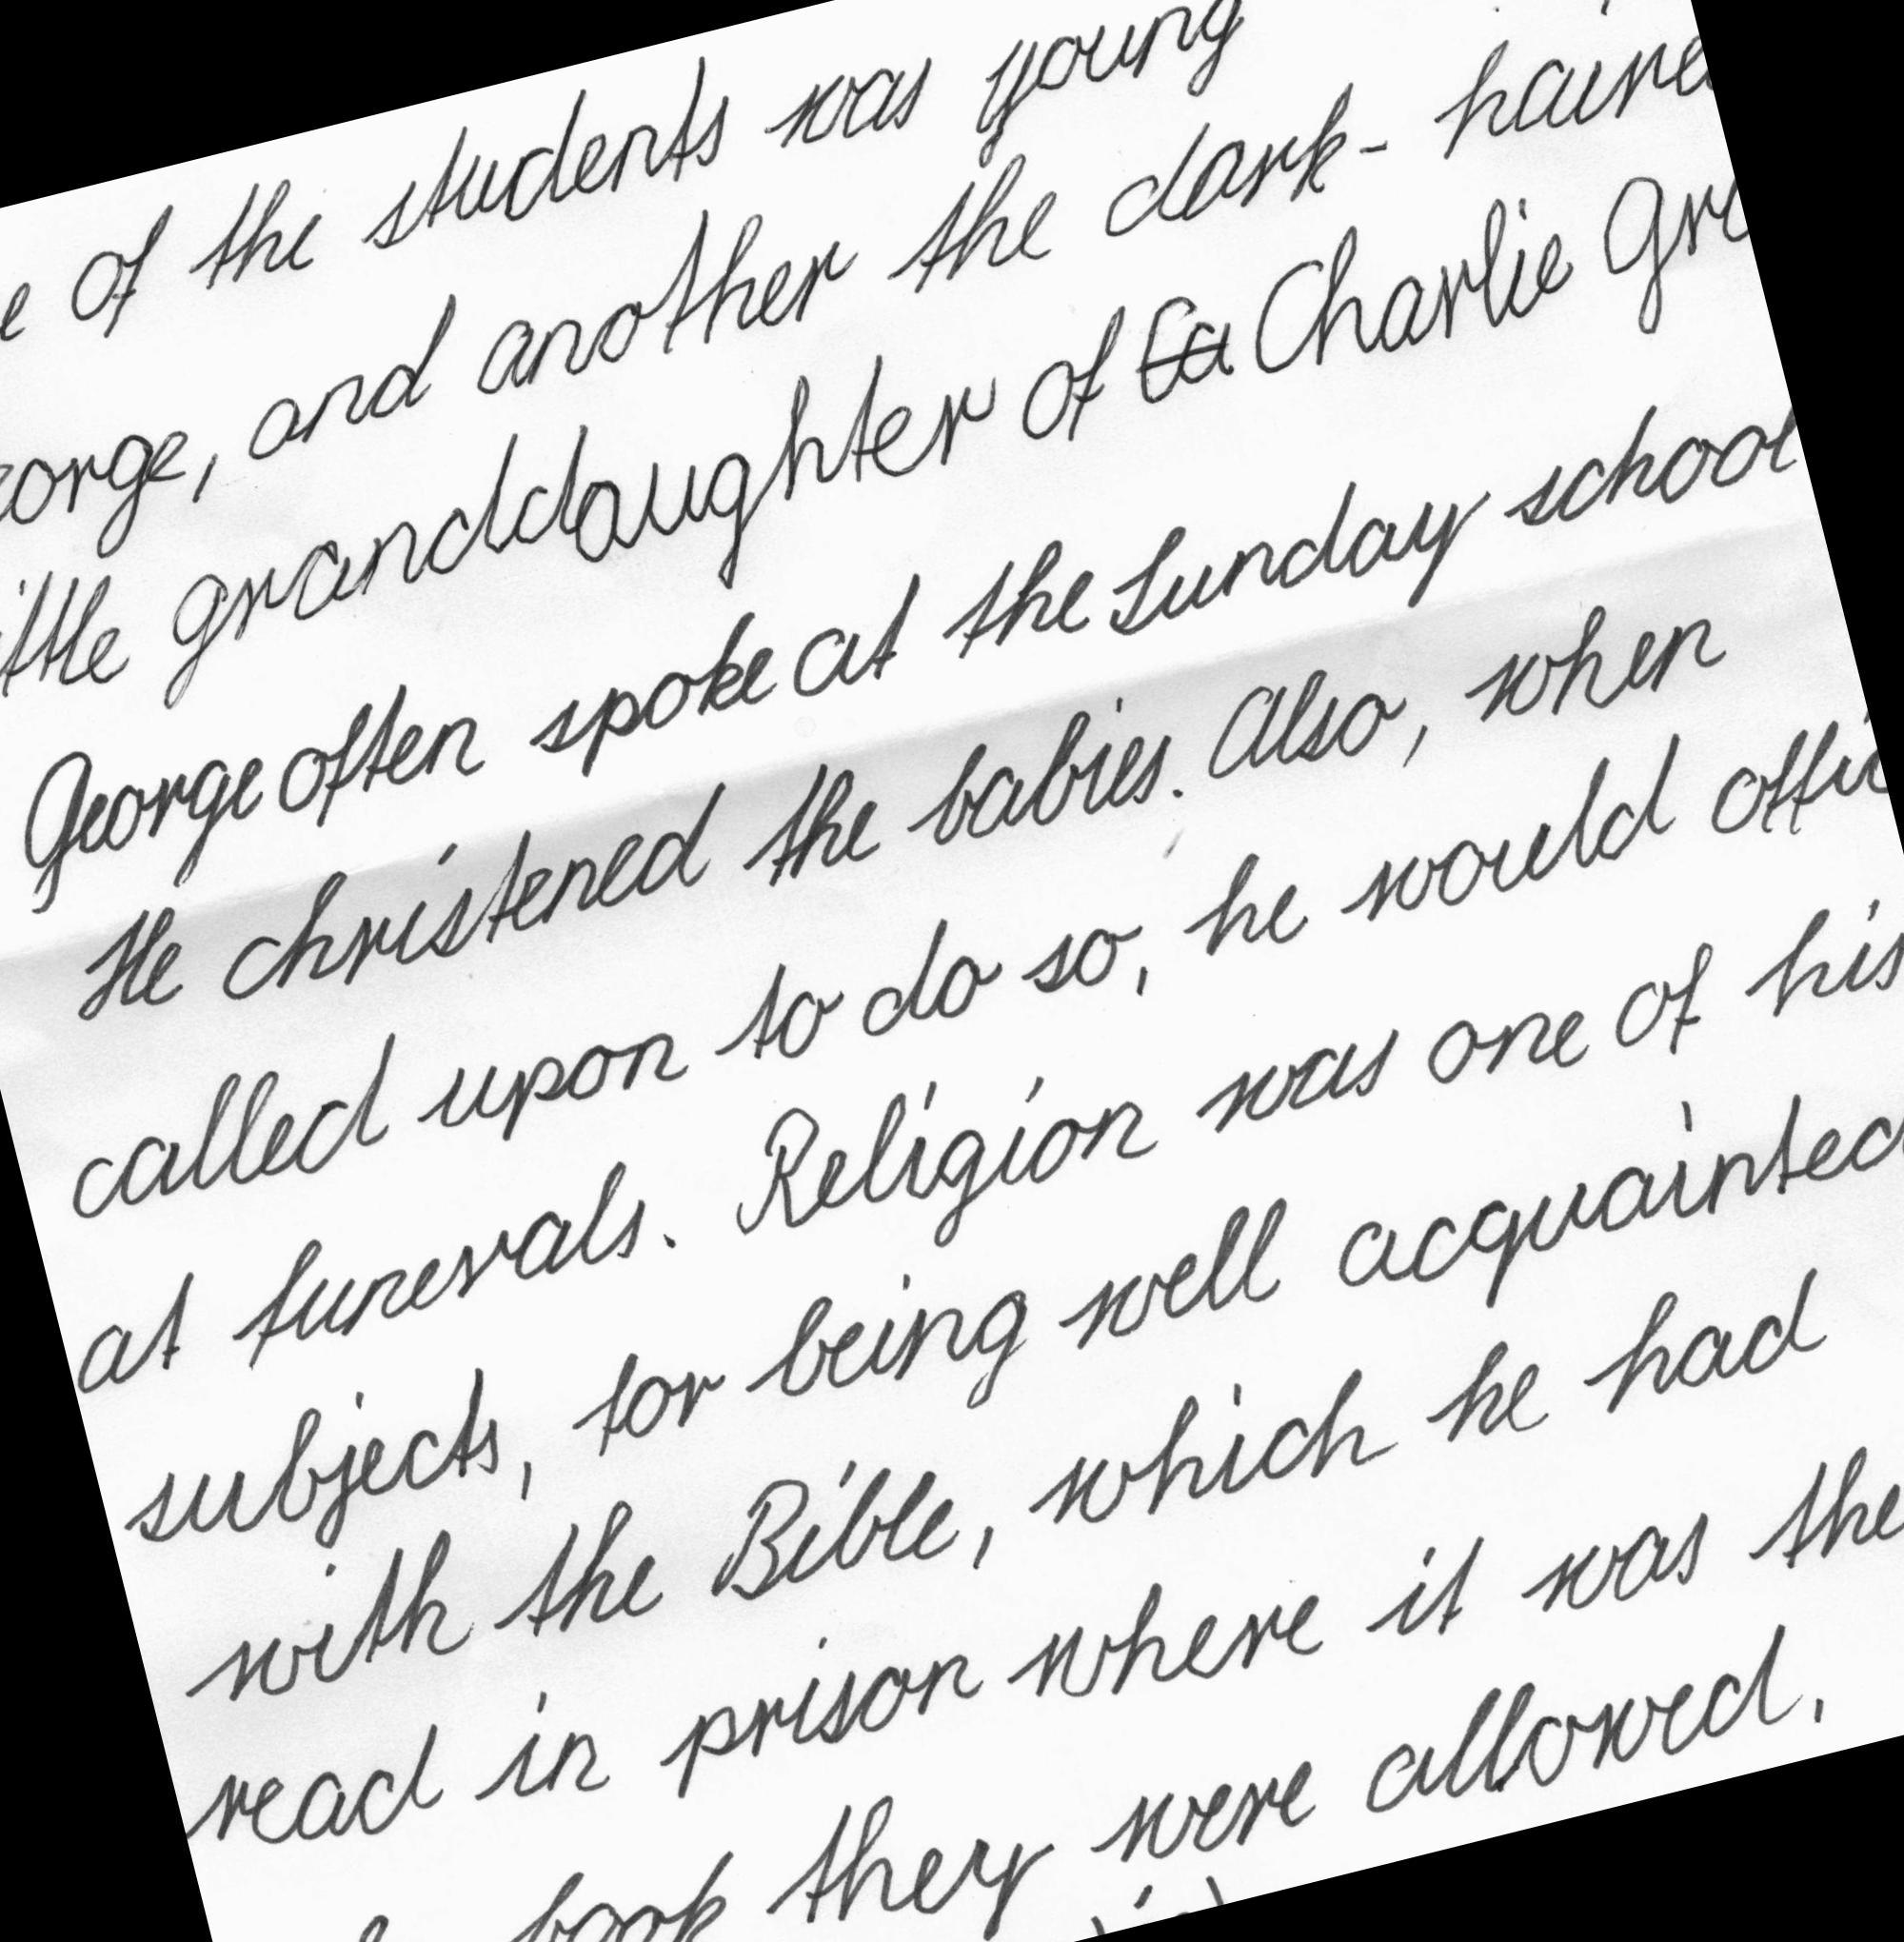 of the students was young
and another the dark-
granddaughter of Charlie
George often spoke at the Sunday school
He christened the babies. Also, when
called upon to do so, he would
at funerals. Religion was one of his
subjects, for being well acquainted
with the Bible, which he had
read in prison where it was the
book they were allowed.